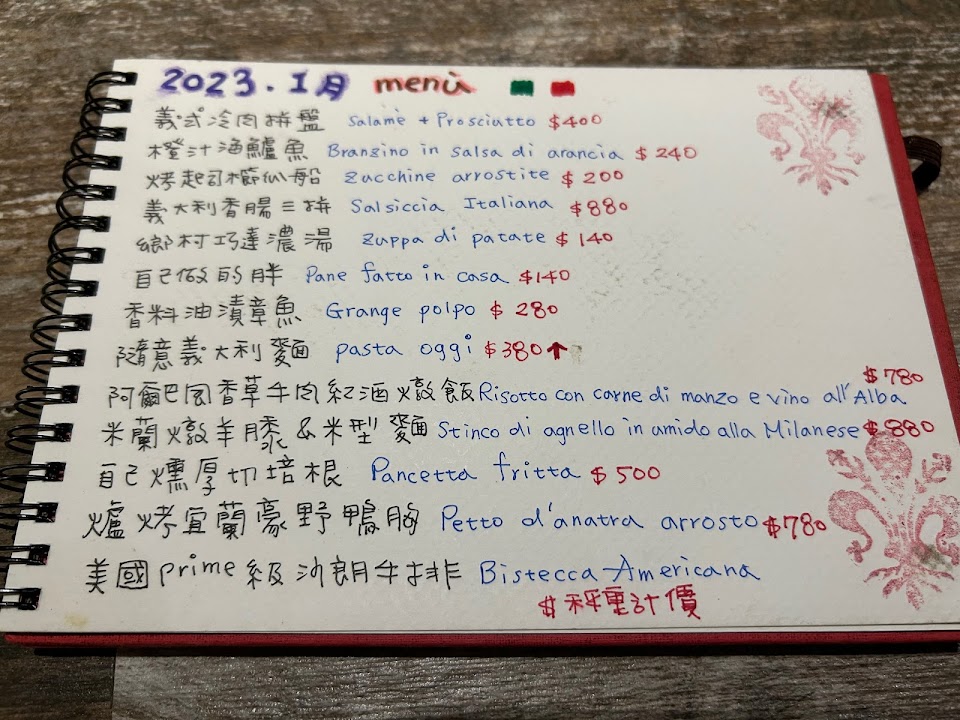 2023.1月 menù
義式冷肉拼盤 Salamè + Prosciutto $400
橙汁海鱸魚 Branzino in salsa di arancia $240
烤起司櫛瓜船 Zucchine arrostite $200
義大利香腸三拼 Salsiccia Italiana $880
鄉村巧達濃湯 Zuppa di patate $140
自己做的胖 Pane fatto in casa $140
香料油漬章魚 Grange polpo $280
隨意義大利麵 pasta oggi $380↑
阿爾巴風香草牛肉紅酒燉飯 Risotto con carne di manzo e vino all'Alba $780
米蘭燉羊膝&米型麵 Stinco di agnello in amido alla Milanese $880
自己燻厚切培根 Pancetta fritta $500
爐烤宜蘭豪野鴨胸 Petto d'anatra arrosto $780
美國prime級沙朗牛排 Bistecca Americana
$秤重計價